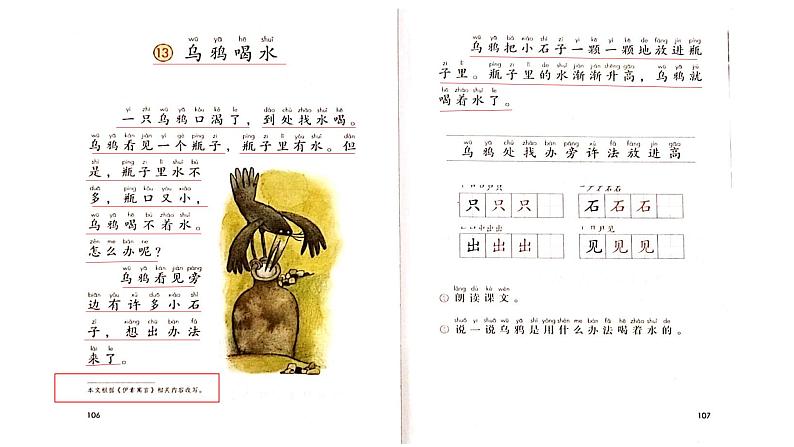 wū yā hē shuǐ
⑬ 乌鸦喝水
yì zhī wū yā kǒu kě le dào chù zhǎo shuǐ hē
一只乌鸦口渴了，到处找水喝。
wū yā kàn jiàn yí gè píng zi píng zi lǐ yǒu shuǐ dàn
乌鸦看见一个瓶子，瓶子里有水。但
shì píng zi lǐ shuǐ bù
是，瓶子里水不
duō píng kǒu yòu xiǎo
多，瓶口又小，
wū yā hē bù zháo shuǐ
乌鸦喝不着水。
zěn me bàn ne
怎么办呢？
wū yā kàn jiàn páng
乌鸦看见旁
biān yǒu xǔ duō xiǎo shí
边有许多小石
zǐ xiǎng chū bàn fǎ
子，想出办法
lái le
来了。
本文根据《伊索寓言》相关内容改写。
106
wū yā bǎ xiǎo shí zǐ yì kē yì kē de fàng jìn píng
乌鸦把小石子一颗一颗地放进瓶
zi lǐ píng zi lǐ de shuǐ jiàn jiàn shēng gāo wū yā jiù
子里。瓶子里的水渐渐升高，乌鸦就
hē zháo shuǐ le
喝着水了。
wū yā chù zhǎo bàn páng xǔ fǎ fàng jìn gāo
乌鸦处找办旁许法放进高
只只只 石石石
出出出 见见见
lǎng dú kè wén
朗读课文。
shuō yì shuō wū yā shì yòng shén me bàn fǎ hē zháo shuǐ de
说一说乌鸦是用什么办法喝着水的。
107